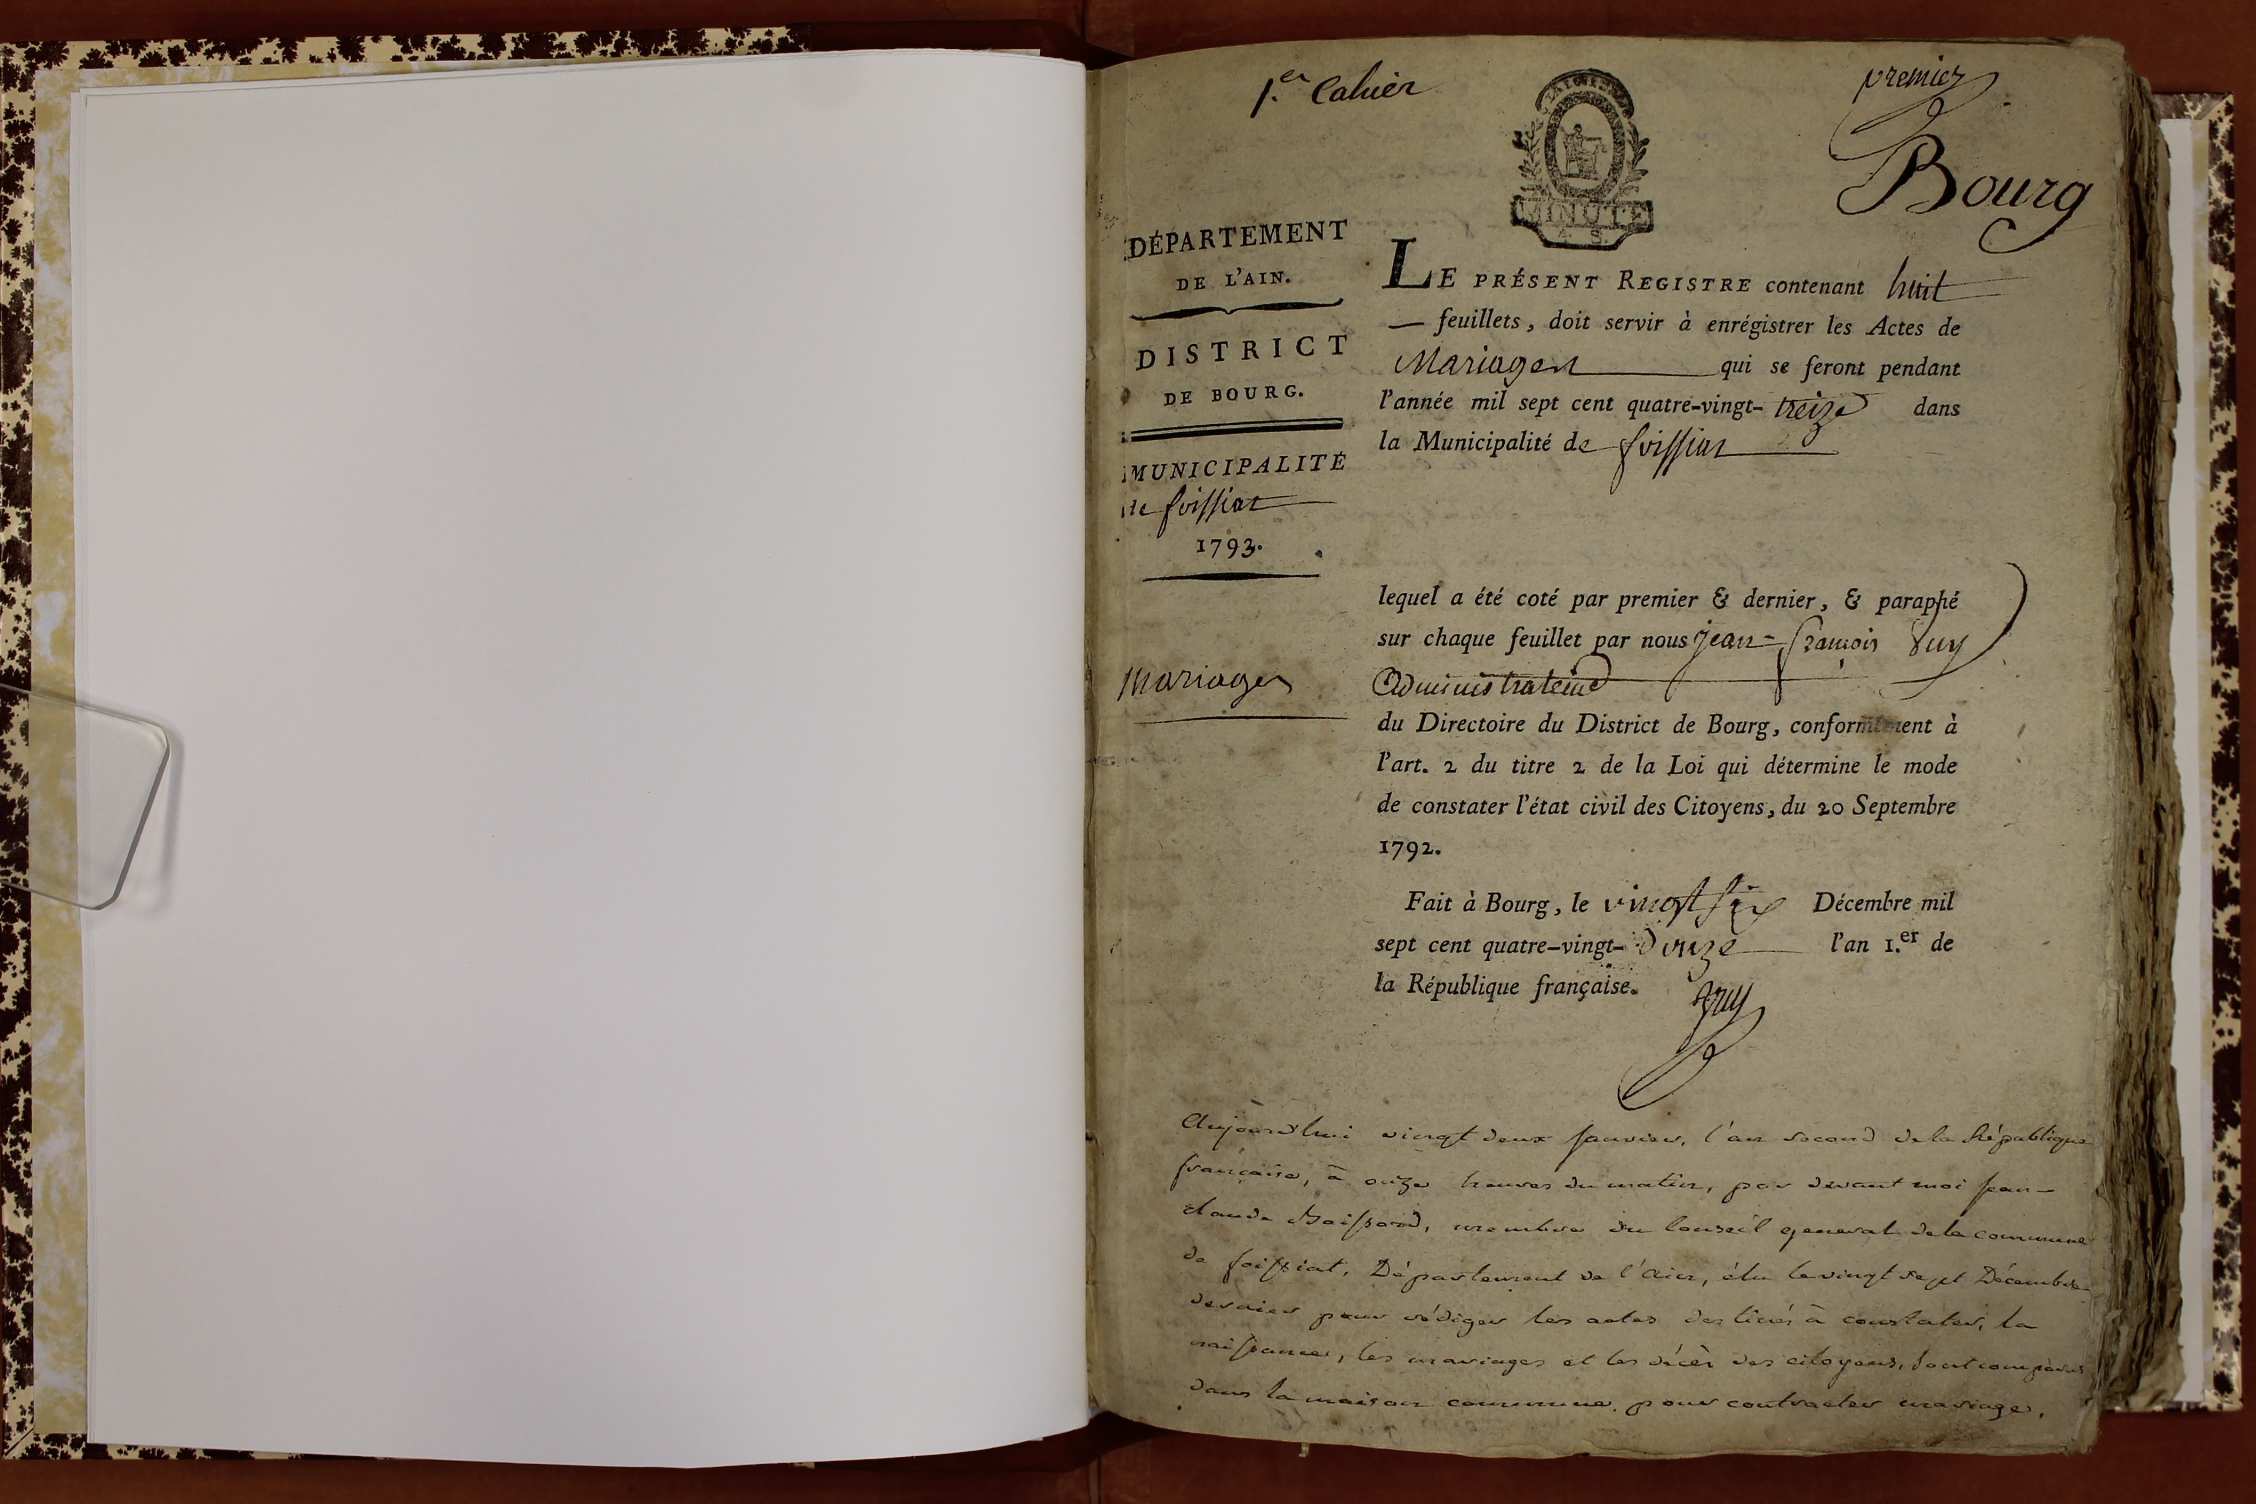 1.er Cahier
premier
Bourg
LA LOI
MINUTE
4 S
DÉPARTEMENT
DE L'AIN.
DISTRICT
DE BOURG.
MUNICIPALITÉ
de foissiat
1793.
Mariages
LE PRÉSENT REGISTRE contenant huit
— feuillets, doit servir à enrégistrer les Actes de
Mariages qui se feront pendant
l'année mil sept cent quatre-vingt-treize dans
la Municipalité de foissiat
lequel a été coté par premier & dernier, & paraphé
sur chaque feuillet par nous jean-françois
administrateur
du Directoire du District de Bourg, conformément à
l'art. 2 du titre 2 de la Loi qui détermine le mode
de constater l'état civil des Citoyens, du 20 Septembre
1792.
Fait à Bourg, le vingt six Décembre mil
sept cent quatre-vingt-douze l'an 1.er de
la République française.
Aujourd'hui vingt deux janvier, l'an second de la République
française, à onze heures du matin, par devant moi jean-
claude Boissard, membre du Conseil general de la commune
de foissiat, Département de l'ain, élu le vingt sept Décembre
dernier pour rédiger les actes destinés à constater, la
naissance, les mariages et les décès des citoyens, sont comparus
dans la maison commune, pour contracter mariage,